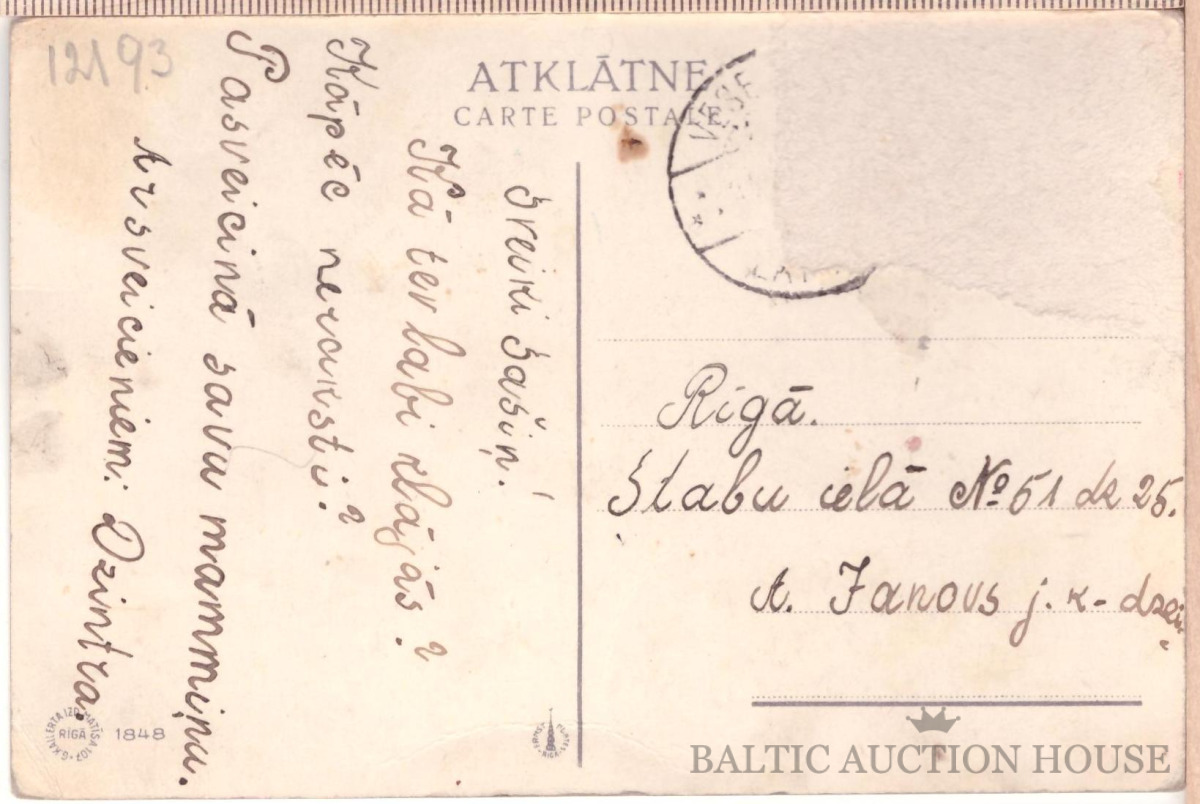 12193
ATKLĀTNE
CARTE POSTALE
Sveiki Sašiņ!
Kā tev labi klājās?
Kāpēc neraksti?
Pasveicinā savu mammiņu.
Ar sveicieniem: Dzintra.
Rīgā.
Stabu ielā № 51 dz 25.
A. Janovs j. k-dze
RĪGĀ
1848
BALTIC AUCTION HOUSE